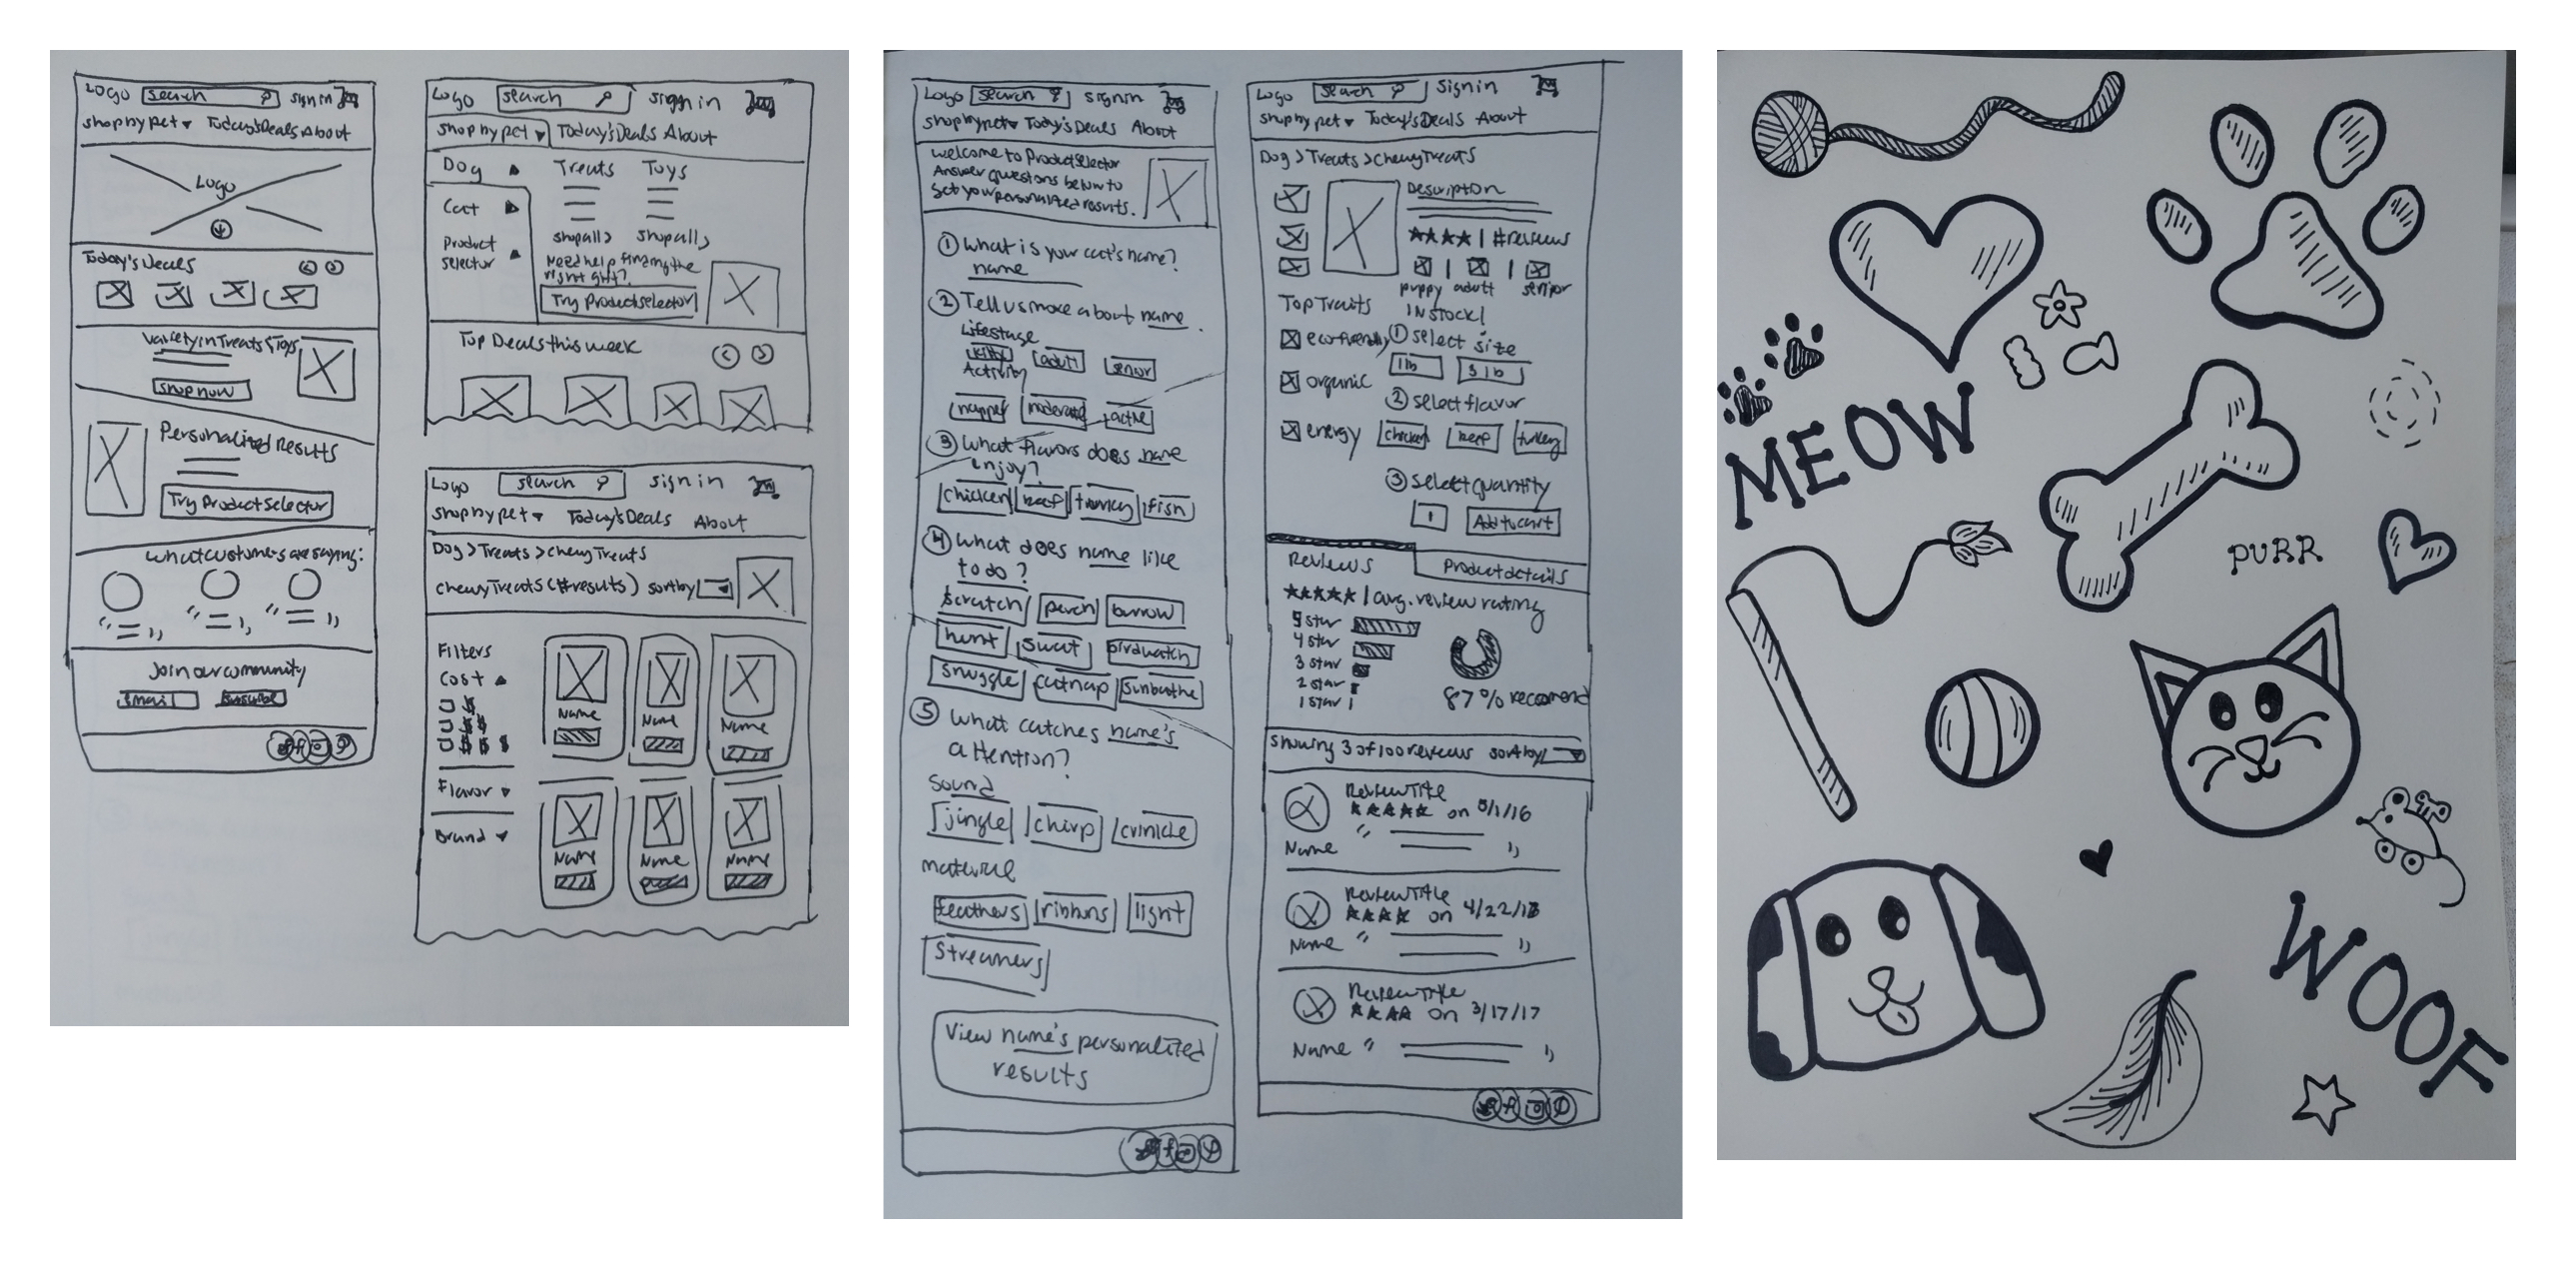 Logo search sign in
shop by pet Today's Deals About
Logo
Today's Deals
Variety in Treats & Toys
shop now
Personalized Results
Try Product Selector
What customers are saying:
Join our community
Email subscribe
Logo search sign in
shop by pet Today's Deals About
Dog Treats Toys
Cat
shop all > shop all >
Product
selector
Need help finding the
right gift?
Try Product selector
Top Deals this week
Logo search sign in
shop by pet Today's Deals About
Dog > Treats > Chewy Treats
chewy Treats (# results) sort by
Filters
Cost
$
$$
$$$
Name Name Name
Flavor
Brand
Name Name Name
Logo search sign in
shop by pet Today's Deals About
Welcome to Product Selector
Answer questions below to
get your personalized results.
1 What is your cat's name?
name
2 Tell us more about name.
Lifestage
kitty adult senior
Activity
napper moderate active
3 What flavors does name
enjoy?
chicken beef turkey fish
4 What does name like
to do?
scratch perch burrow
hunt swat birdwatch
snuggle catnap sunbathe
5 What catches name's
attention?
sound
jingle chirp crinkle
material
feathers ribbons light
streamers
View name's personalized
results
Logo search sign in
shop by pet Today's Deals About
Dog > Treats > Chewy Treats
Description
★★★★ | # reviews
puppy adult senior
Top Traits IN STOCK!
eco friendly 1 select size
1 lb 3 lb
organic 2 select flavor
energy chicken beef turkey
3 select quantity
1 Add to cart
Reviews Product details
★★★★★ | avg. review rating
5 star
4 star
3 star
2 star
1 star
87% recomend
Showing 3 of 100 reviews sort by
Review Title
★★★★★ on 5/1/16
Name
Review Title
★★★★ on 4/22/18
Name
Review Title
★★★★ on 3/17/17
Name
MEOW
PURR
WOOF